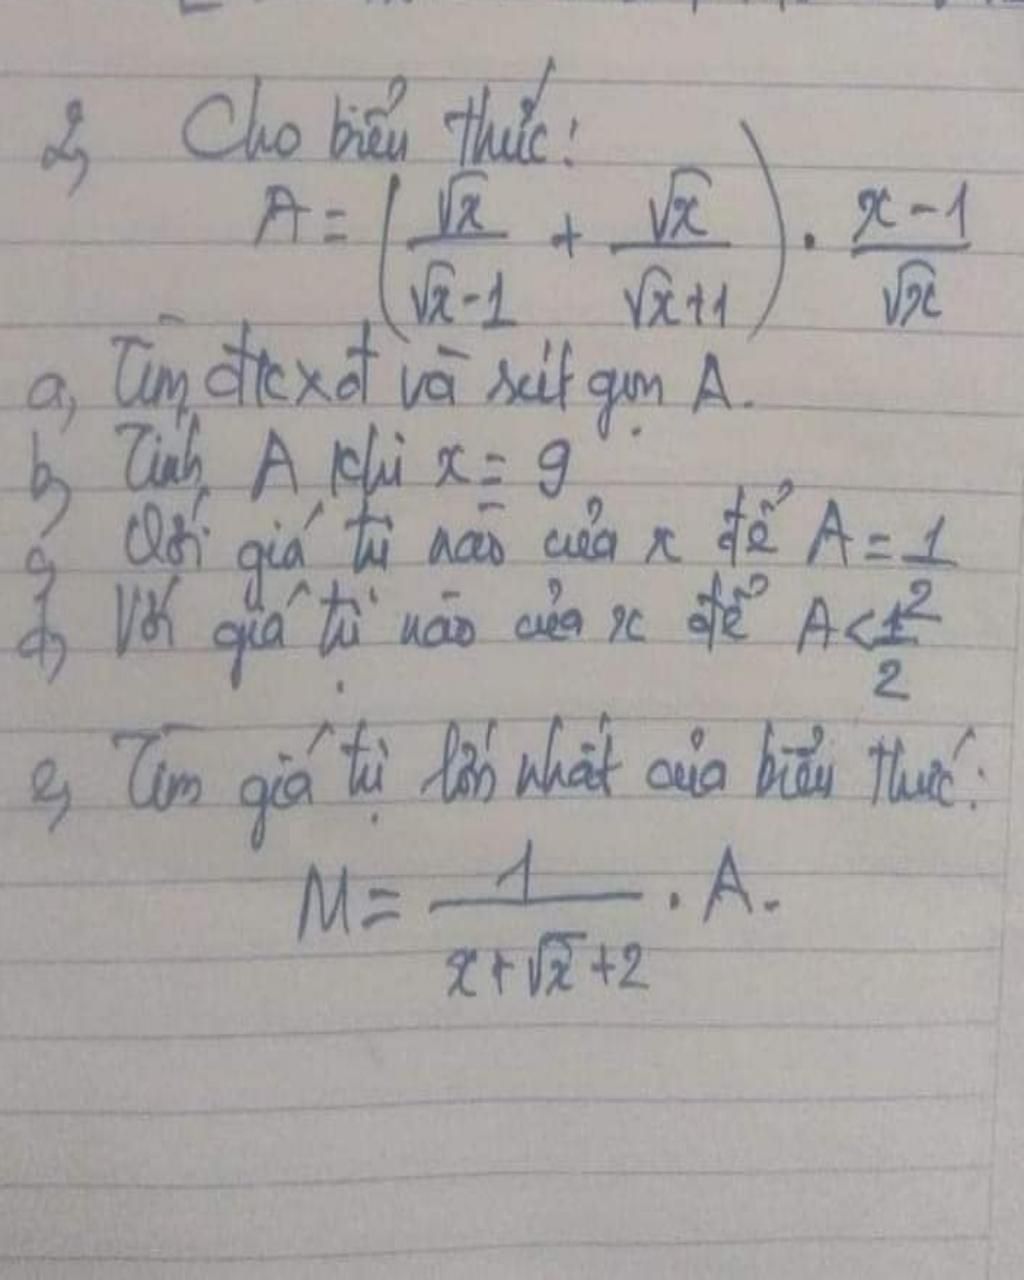 2, Cho biểu thức:
A = (√x/(√x-1) + √x/(√x+1)) . (x-1)/√x
a, Tìm đkxđ và rút gọn A.
b, Tính A khi x = 9
c, Với giá trị nào của x để A = 1/2
d, Với giá trị nào của x để A < 1/2
e, Tìm giá trị lớn nhất của biểu thức:
M = 1/(x+√x+2) . A.